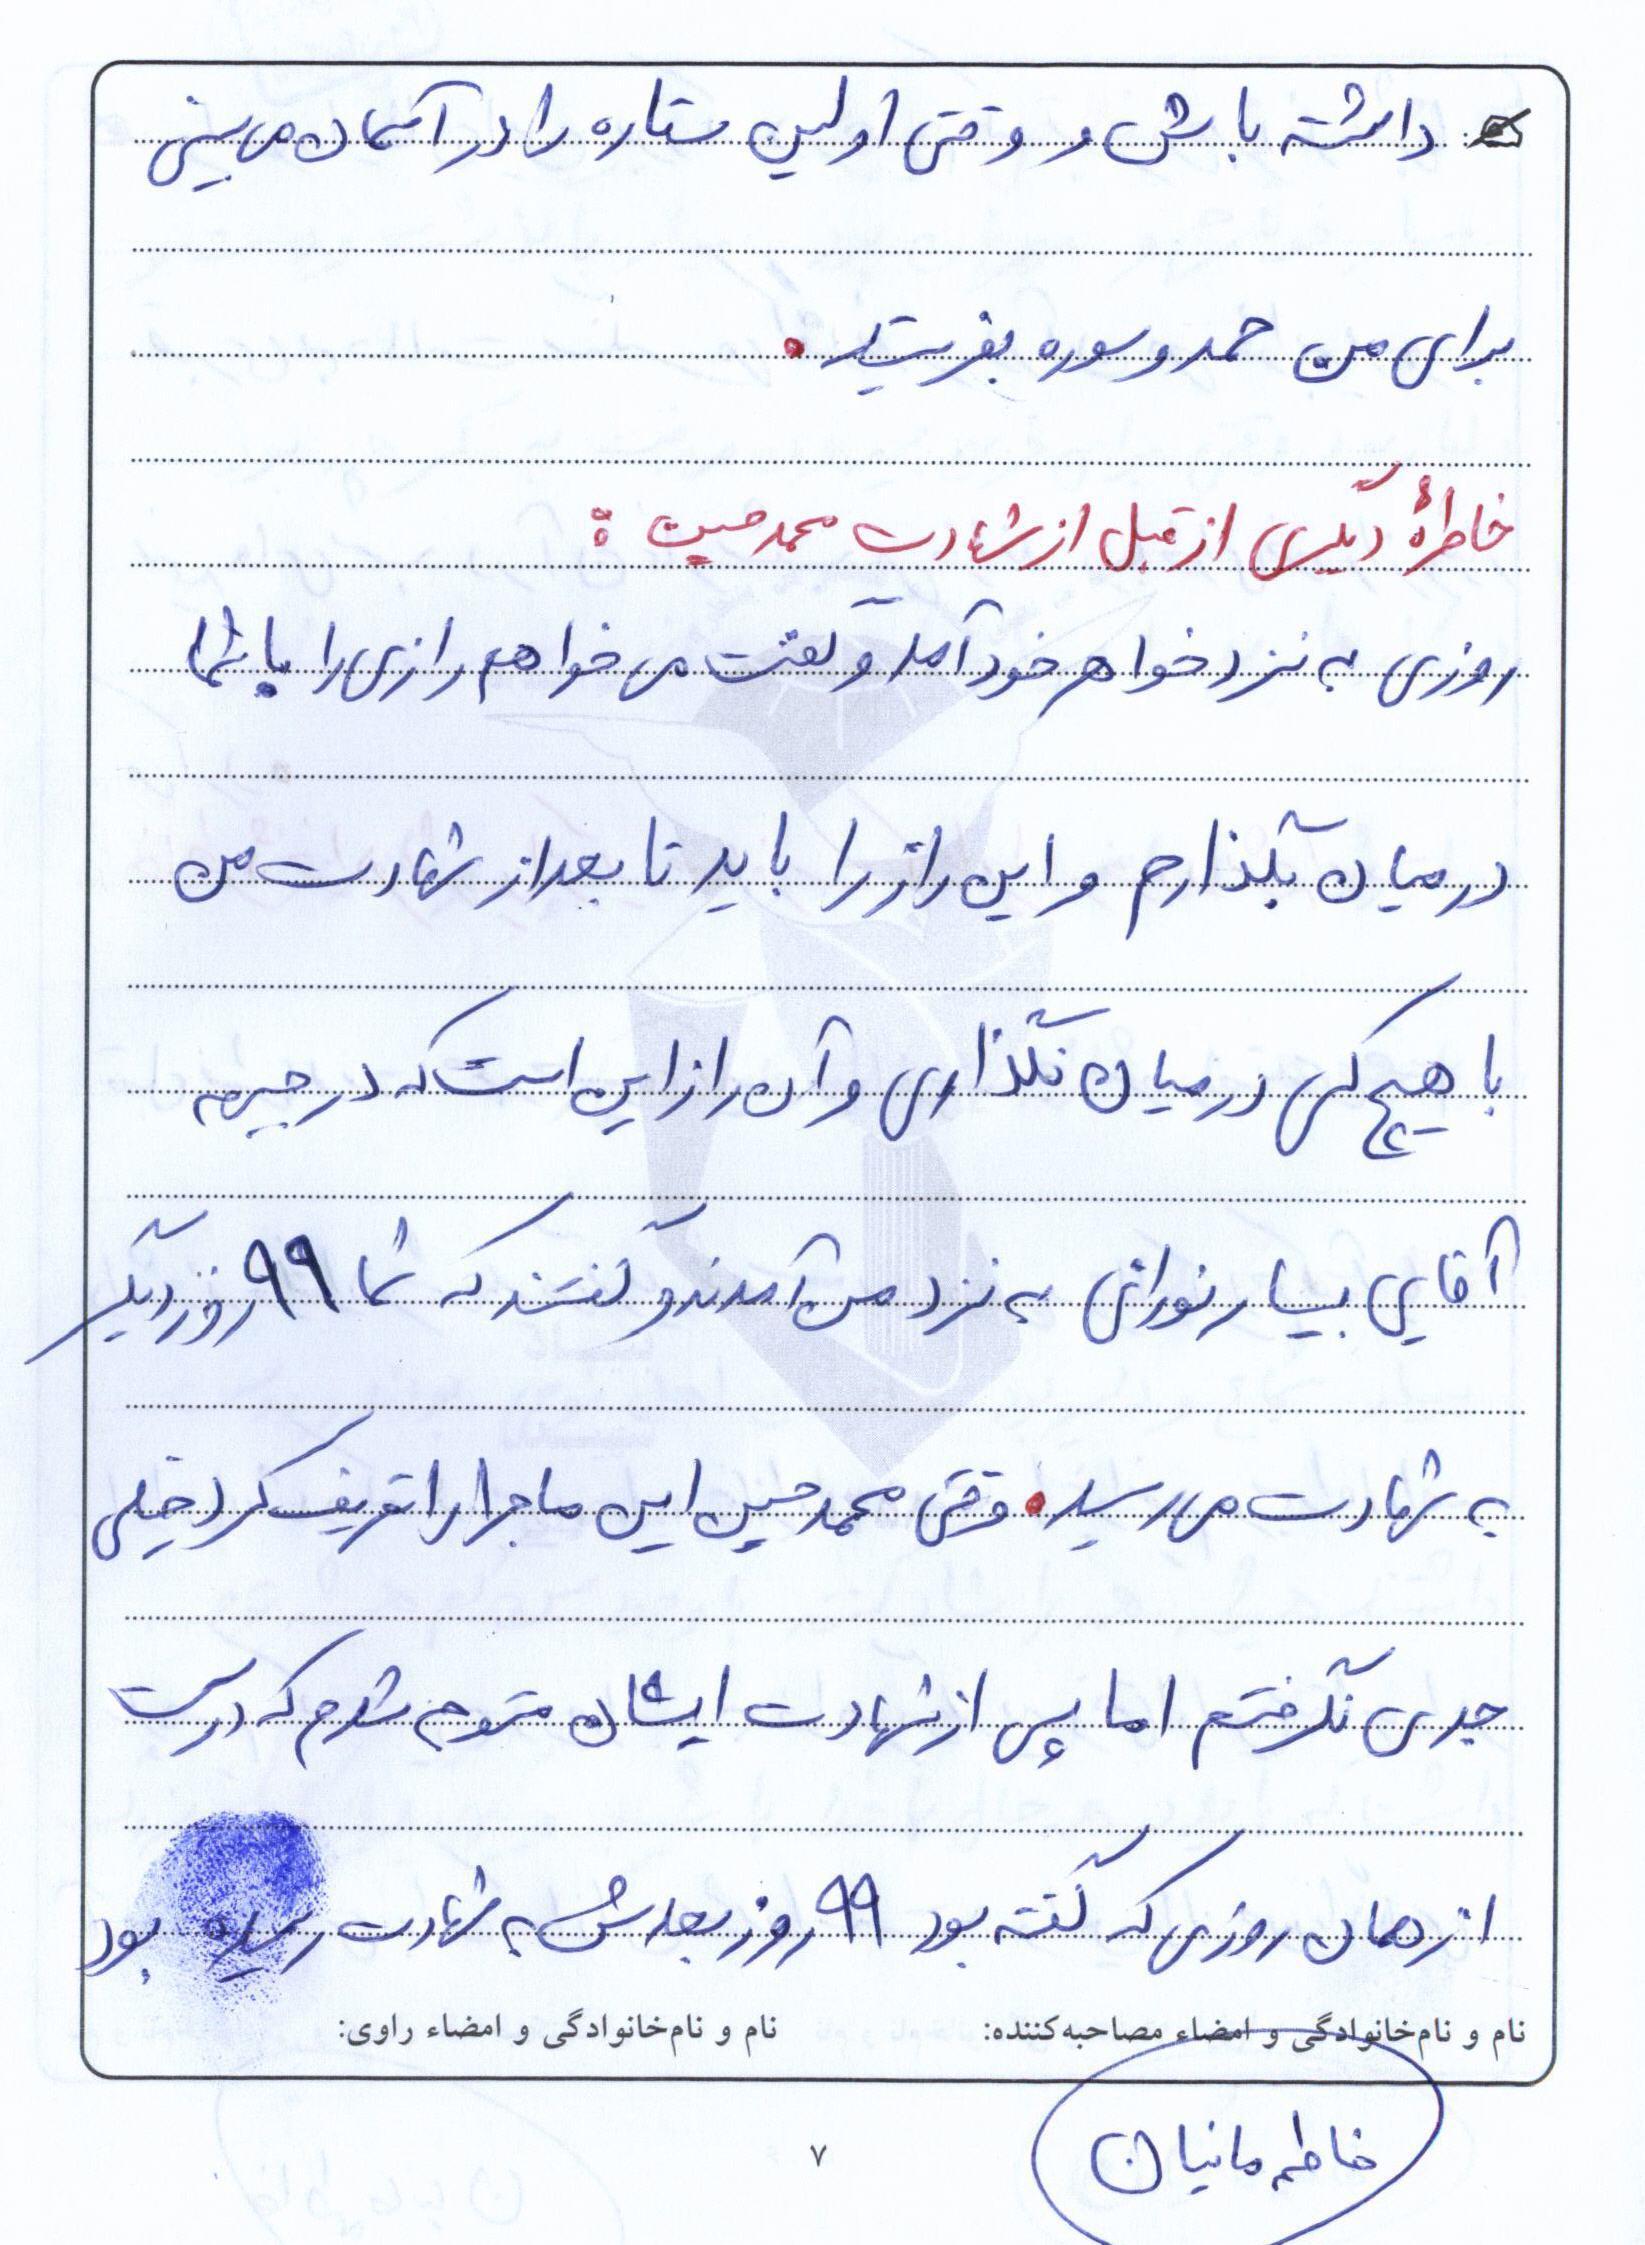 داشته باش و وقتی اولین ستاره را در آسمان می بینی
برای من حمد و سوره بفرستید.
خاطرهٔ دیگری از قبل از شهادت محمد حسین :
روزی به نزد خواهر خود آمد و گفت می خواهم رازی را با شما
در میان بگذارم و این راز را باید تا بعد از شهادت من
با هیچ کس در میان نگذاری و آن راز این است که در جبهه
آقایی بسیار نورانی به نزد من آمدند و گفتند که شما ۹۹ روز دیگر
به شهادت می رسید. وقتی محمد حسین این ماجرا را تعریف کرد خیلی
جدی نگرفتم اما پس از شهادت ایشان متوجه شدم که درست
از همان روزی که گفته بود ۹۹ روز بعدش به شهادت رسیده بود
نام و نام‌خانوادگی و امضاء مصاحبه‌کننده: نام و نام‌خانوادگی و امضاء راوی:
فاطمه مانیان
۷